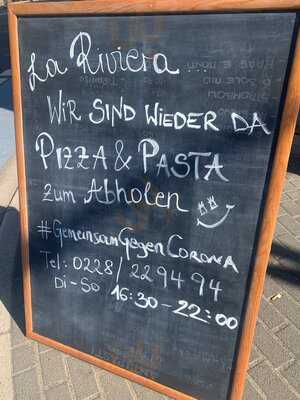 La Riviera ...
WIR SIND WIEDER DA
PIZZA & PASTA
zum Abholen
#GemeinsamGegenCorona
Tel: 0228/229494
Di-So 16:30-22:00